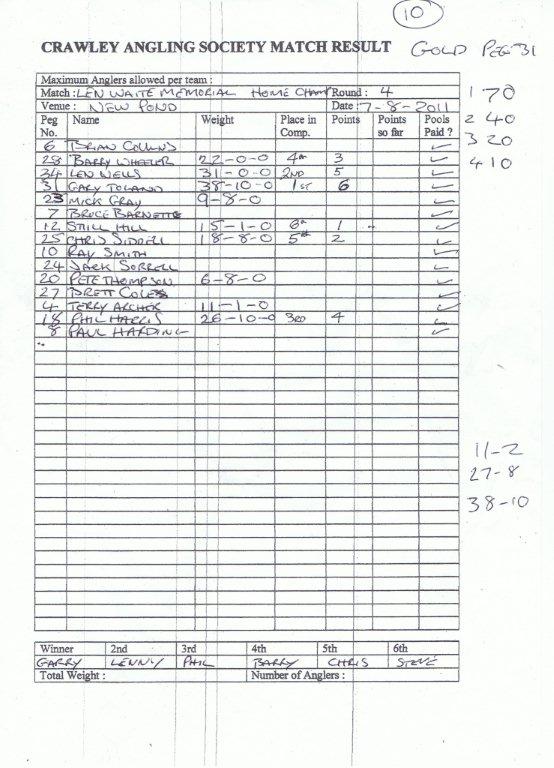 10
CRAWLEY ANGLING SOCIETY MATCH RESULT GOLD PEG 31
Maximum Anglers allowed per team :
Match : LEN WAITE MEMORIAL HOME CHAM Round : 4
Venue : NEW POND Date : 7-8-2011
Peg No. Name Weight Place in Comp. Points Points so far Pools Paid ?
1 70
2 40
3 20
4 10
6 BRIAN COLLINS ✓
28 BARRY WHEELER 22-0-0 4th 3 ✓
34 LEN WELLS 31-0-0 2ND 5 ✓
31 GARY TOLAND 38-10-0 1ST 6 ✓
23 MICK GRAY 9-8-0 ✓
7 BRUCE BARNETT ✓
12 STILL HILL 15-1-0 6th 1 ✓
25 CHRIS SIDDELL 18-8-0 5th 2 ✓
10 RAY SMITH ✓
24 JACK SORRELL ✓
20 PETE THOMPSON 6-8-0 ✓
27 BRETT COLES ✓
4 TERRY ARCHER 11-1-0 ✓
18 PHIL HARRIS 26-10-0 3RD 4 ✓
8 PAUL HARDING ✓
11-2
27-8
38-10
Winner 2nd 3rd 4th 5th 6th
GARRY LENNY PHIL BARRY CHRIS STEVE
Total Weight : Number of Anglers :